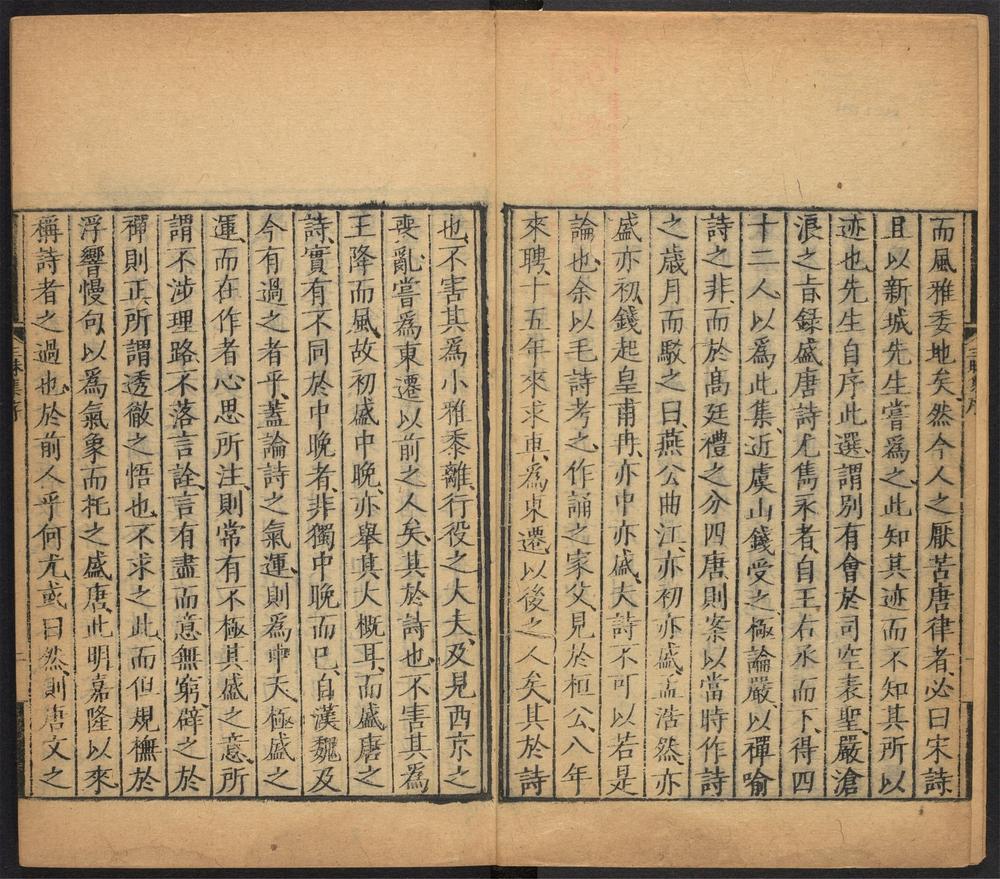 而風雅委地矣然今人之厭苦唐律者必曰宋詩
且以新城先生嘗爲之此知其迹而不知其所以
迹也先生自序此選謂別有會於司空表聖嚴滄
浪之旨録盛唐詩尤雋永者自王右丞而下得四
十二人以爲此集近虞山錢受之極論嚴以禪喻
詩之非而於高廷禮之分四唐則案以當時作詩
之歲月而駁之曰燕公曲江亦初亦盛孟浩然亦
盛亦初錢起皇甫冉亦中亦盛夫詩不可以若是
論也余以毛詩考之作誦之家父見於桓公八年
來聘十五年來求車爲東遷以後之人矣其於詩
三昧集序
也不害其爲小雅黍離行役之大夫及見西京之
喪亂嘗爲東遷以前之人矣其於詩也不害其爲
王降而風故初盛中晚亦舉其大概耳而盛唐之
詩實有不同於中晚者非獨中晚而已自漢魏及
今有過之者乎蓋論詩之氣運則爲中天極盛之
運而在作者心思所注則常有不極其盛之意所
謂不涉理路不落言詮言有盡而意無窮辟之於
禪則正所謂透徹之悟也不求之此而但規橅於
浮響慢句以爲氣象而托之盛唐此明嘉隆以來
稱詩者之過也於前人乎何尤或曰然則唐文之
三昧集序